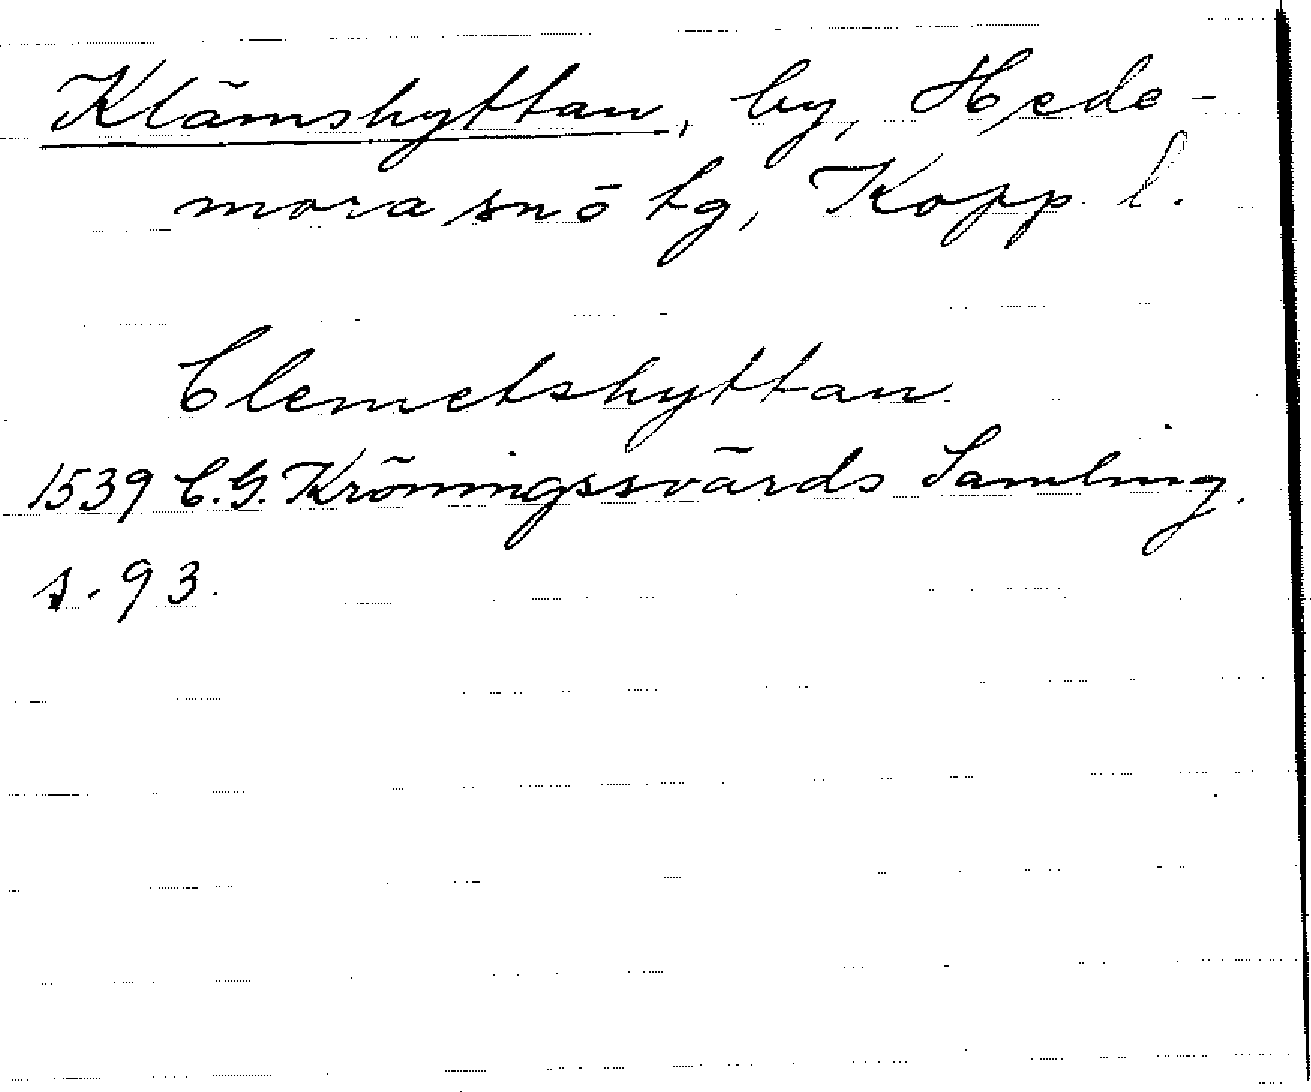 Klämshyttan, by, Hede-
mora snö tg, Kopp. l.
Clemetshyttan
1539 C.G. Kröningssvärds Samling.
s. 93.